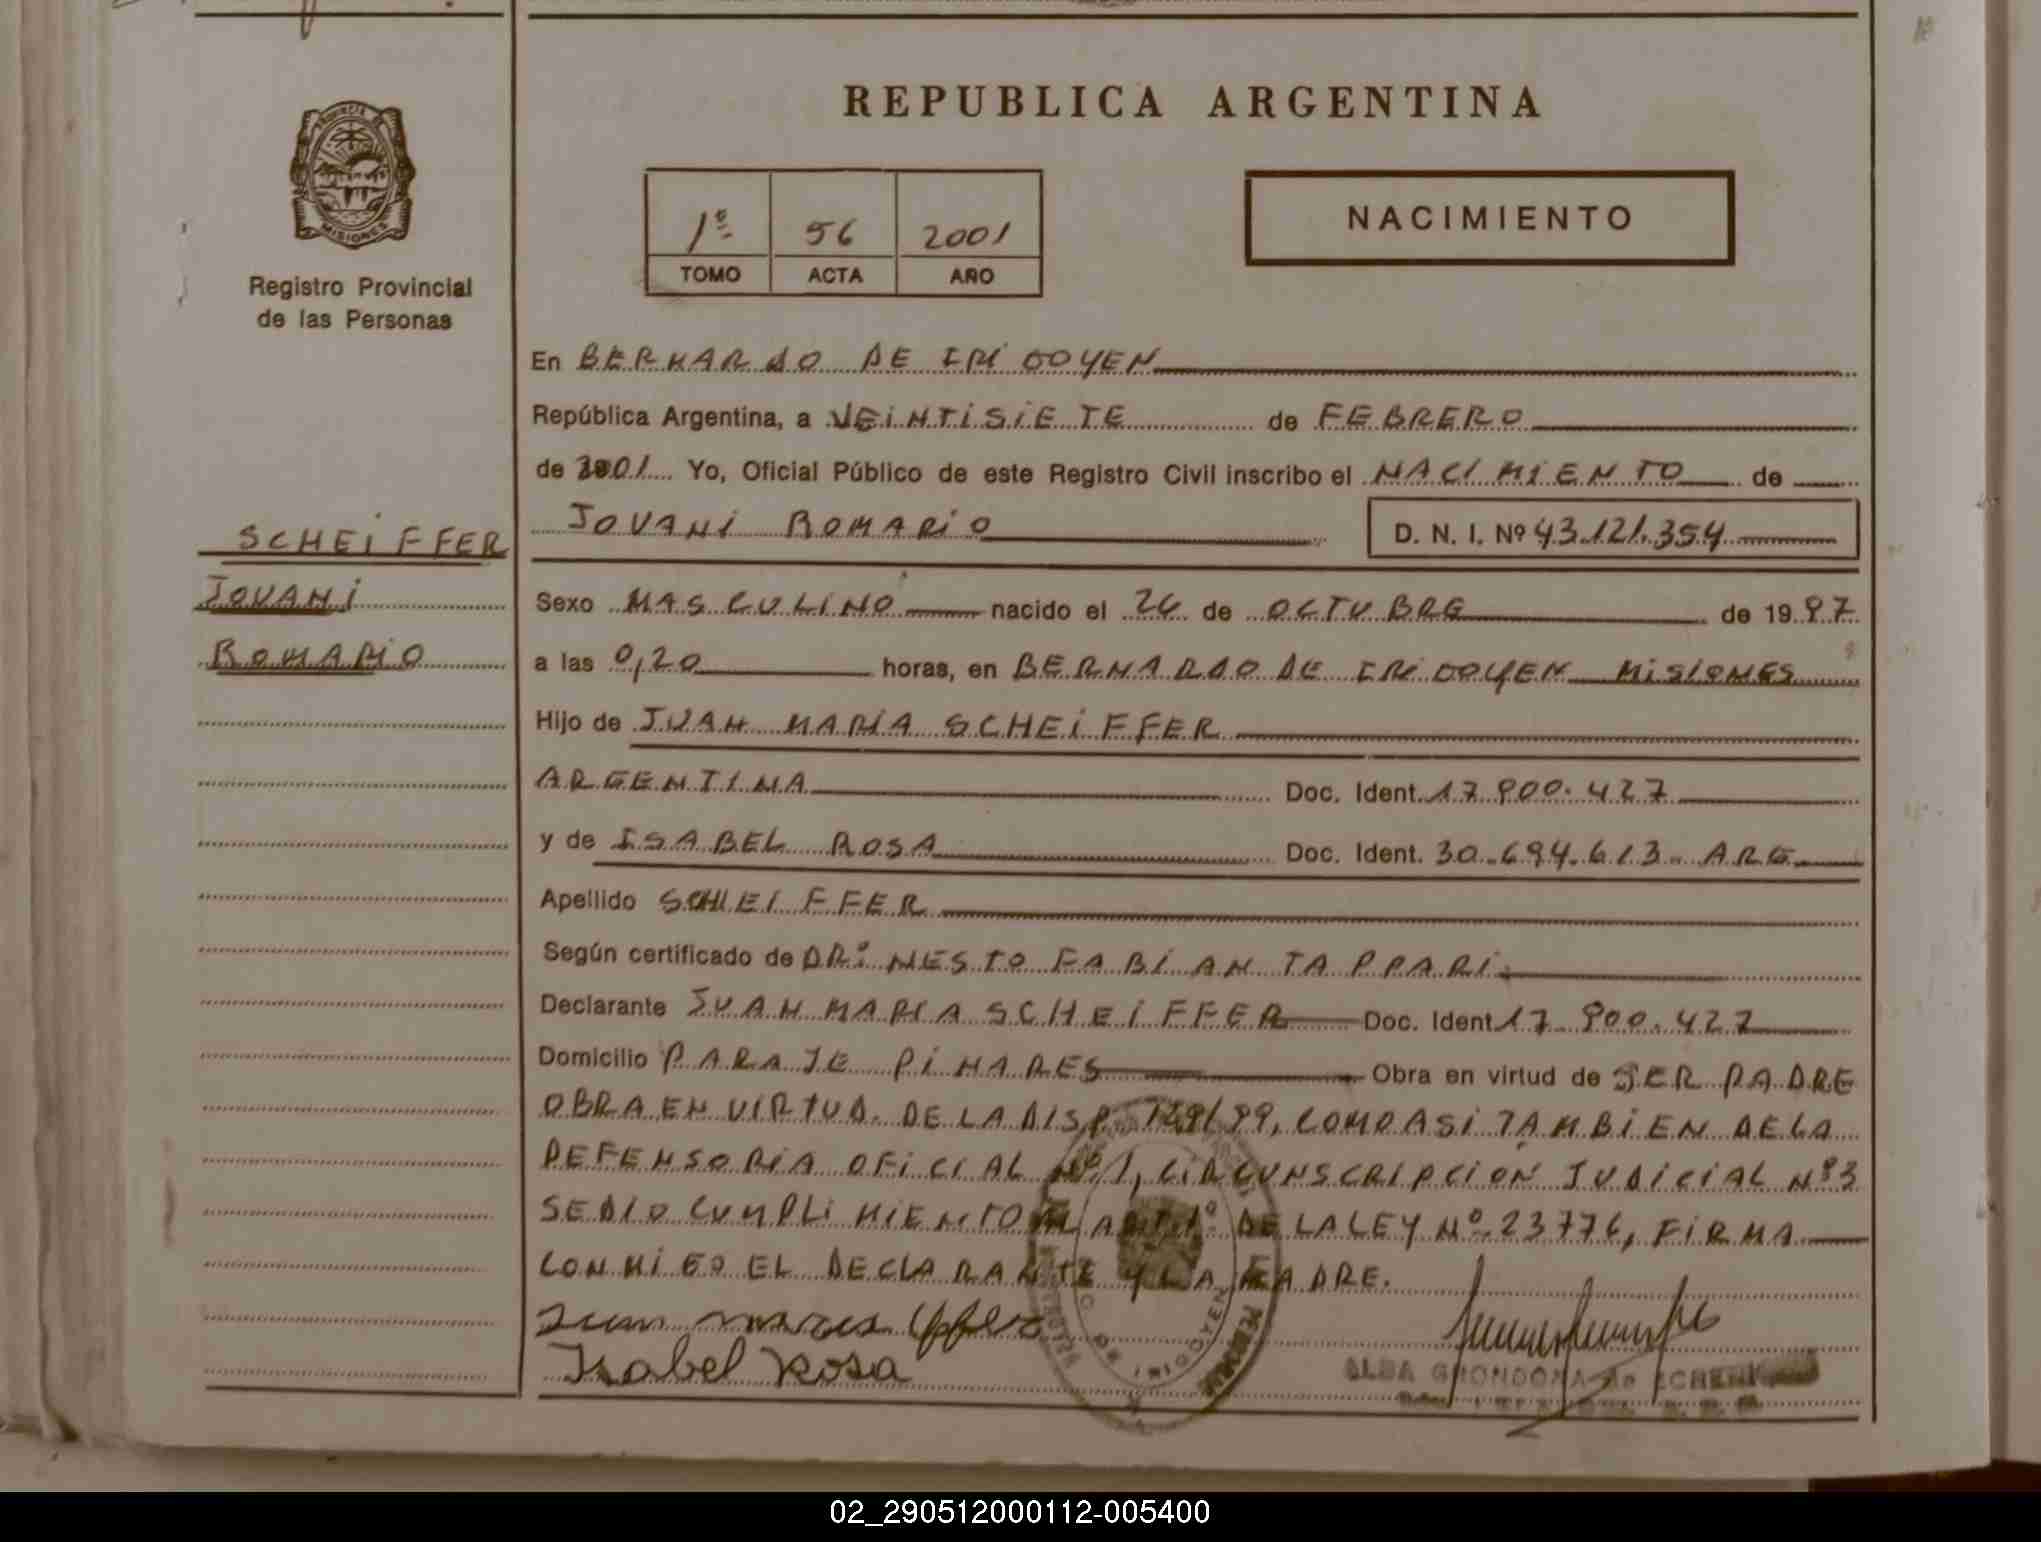 REPUBLICA ARGENTINA
PROVINCIA DE
MISIONES
Registro Provincial
de las Personas
1º 56 2001
TOMO ACTA AÑO
NACIMIENTO
En BERNARDO DE IRIGOYEN
República Argentina, a VEINTISIETE de FEBRERO
de 2001 Yo, Oficial Público de este Registro Civil inscribo el NACIMIENTO de
JOVANI ROMARIO D. N. I. Nº 43.121.354
SCHEIFFER
JOVANI
ROMARIO
Sexo MASCULINO nacido el 26 de OCTUBRE de 19 97
a las 0,20 horas, en BERNARDO DE IRIGOYEN MISIONES
Hijo de JUAN MARIA SCHEIFFER
ARGENTINA Doc. Ident. 17.900.427
y de ISABEL ROSA Doc. Ident. 30.694.613. ARG.
Apellido SCHEIFFER
Según certificado de DR: NESTO FABIAN TAPPARI.
Declarante JUAN MARIA SCHEIFFER Doc. Ident 17.900.427
Domicilio PARAJE PINARES Obra en virtud de SER PADRE
OBRA EN VIRTUD. DE LA DISP. 129/99, COMO ASI TAMBIEN DE LA
DEFENSORIA OFICIAL Nº 1, CIRCUNSCRIPCION JUDICIAL Nº 3
SE DIO CUMPLIMIENTO AL ART. 1º DE LA LEY Nº 23776, FIRMA
CONMIGO EL DECLARANTE Y LA MADRE.
Juan maria
Isabel Rosa
IRIGOYEN
ALBA GRONDONA de
02_290512000112-005400